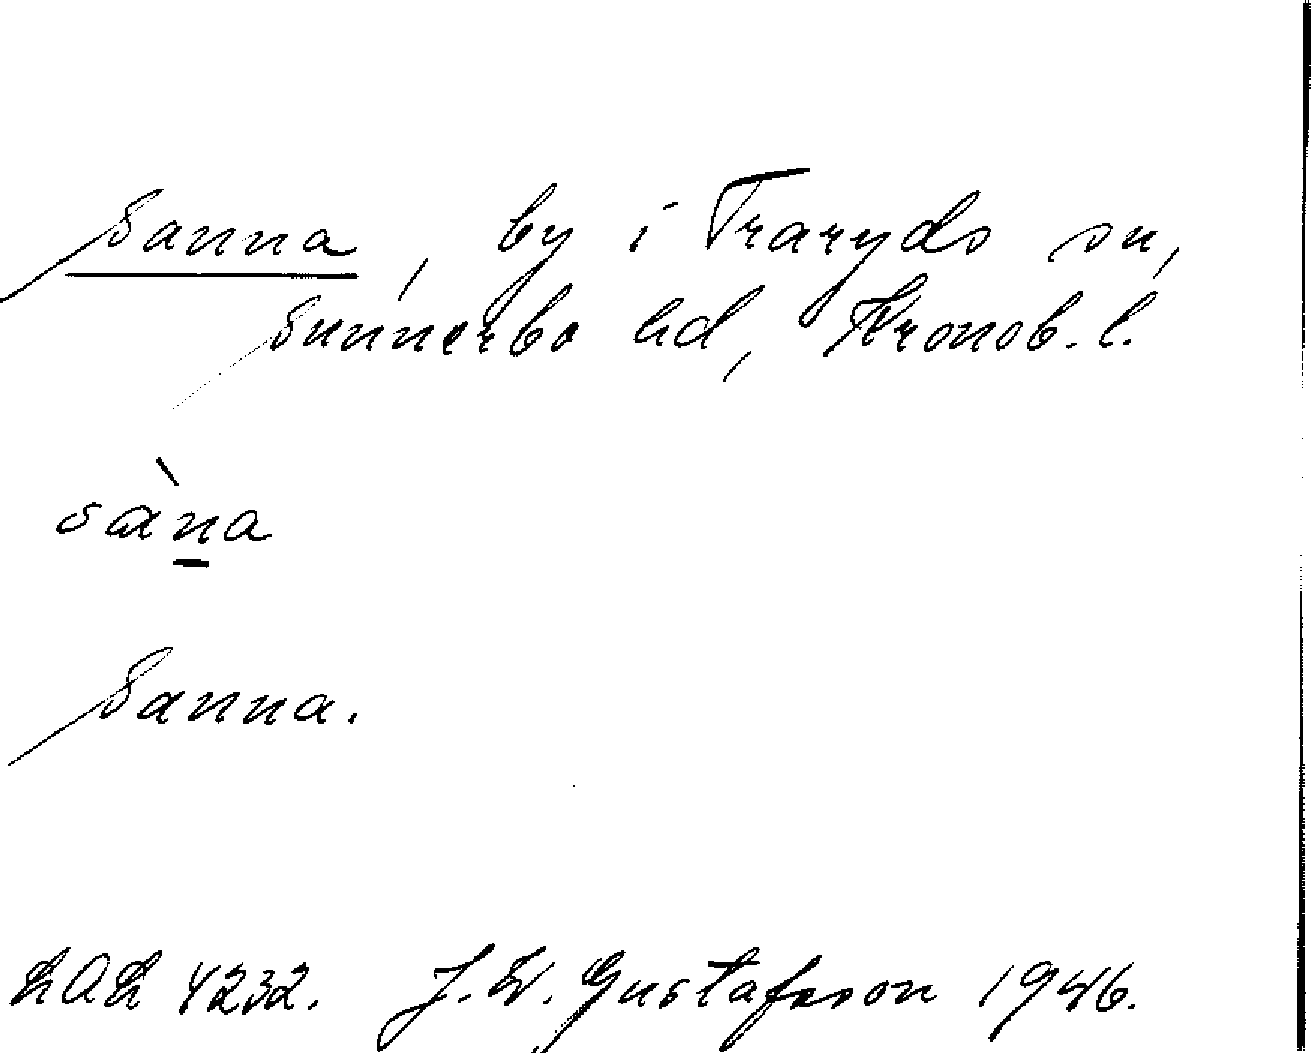 Sanna, by i Traryds sn,
Sunnerbo hd, Kronob. l.
sàna
Sanna.
LAL 4232. J. W. Gustafsson 1946.